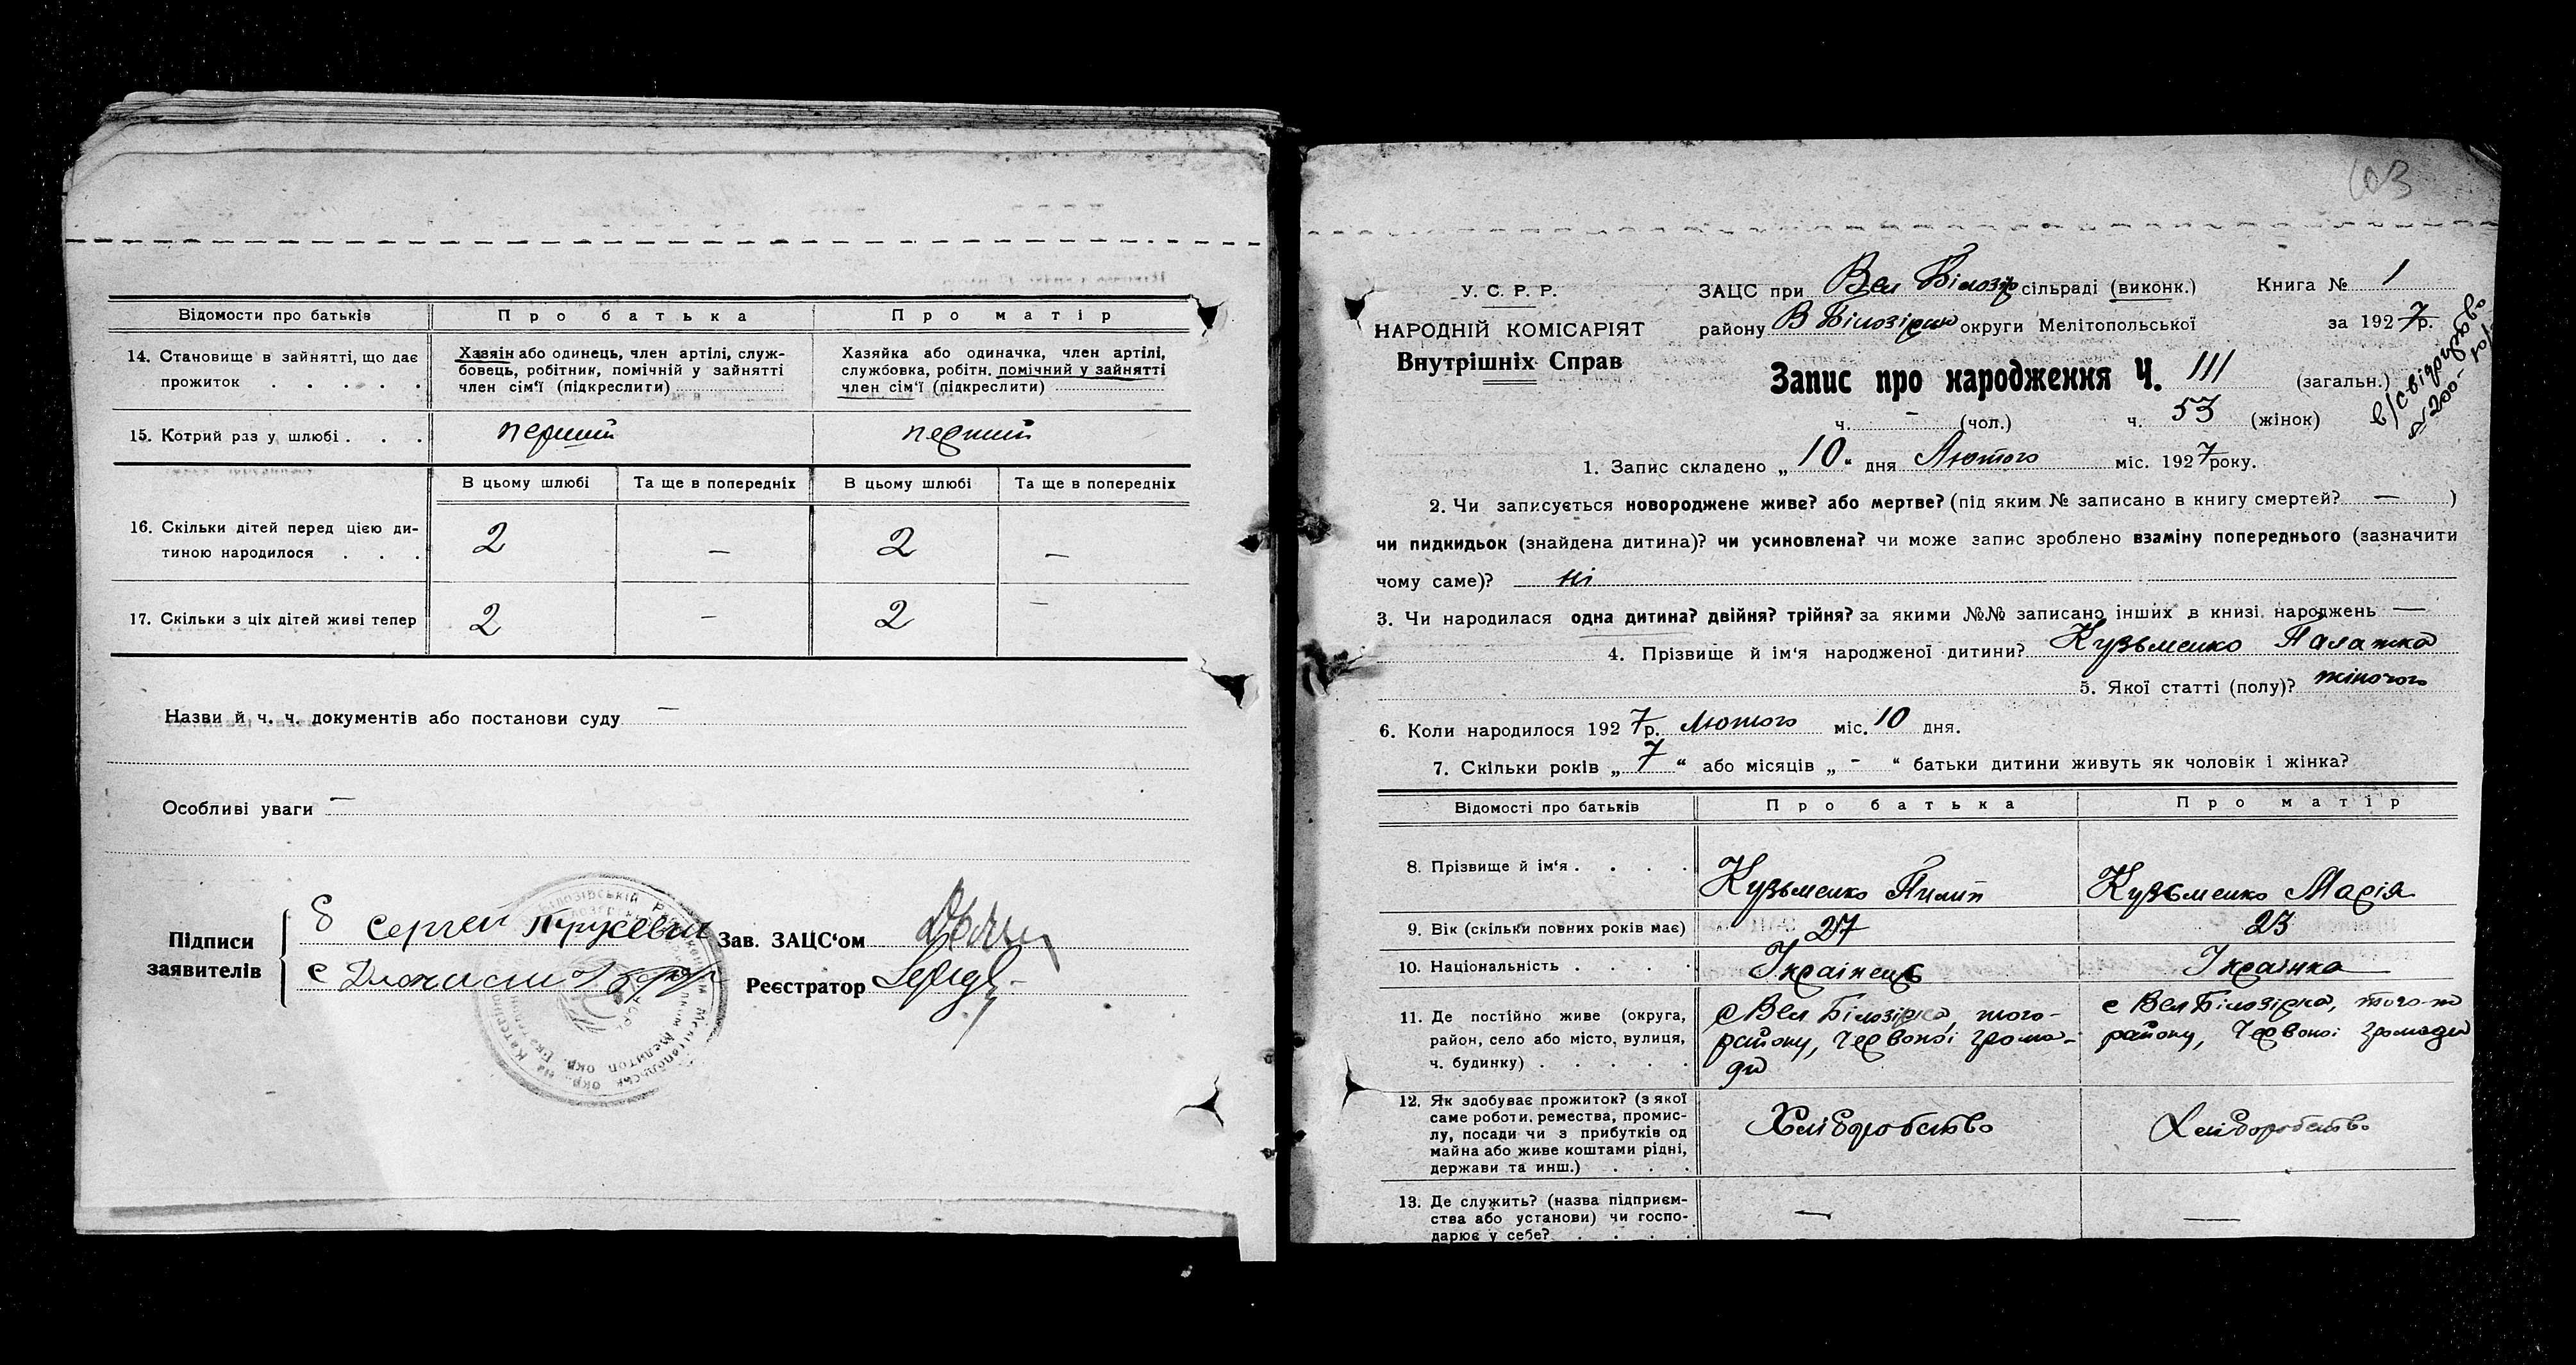 Відомости про батьків
Про батька
Про матір
14. Становище в занятті, що дає прожиток . . . . .
Хазяін або одинець, член артілі, служ-
бовець, робітник, помічній у зайнятті
член сім'ї (підкреслити)
Хазяйка або одиначка, член артілі,
службовка, робітн. помічний у зайнятті
член сім'ї (підкреслити)
15. Котрий раз у шлюбі . . .
перший
перший
В цьому шлюбі
Та ще в попередніх
В цьому шлюбі
Та ще в попередніх
16. Скільки дітей перед цією ди-
тиною народилося . . .
2
—
2
—
17. Скільки з ціх дітей живі тепер
2
—
2
—
Назви й ч. ч. документів або постанови суду —
Особливі уваги —
Підписи
заявителів
Сергей
Зав. ЗАЦС'ом
Реєстратор
103
У. С. Р. Р.
НАРОДНІЙ КОМІСАРІЯТ
Внутрішніх Справ
ЗАЦС при Вел Білозір сільраді (виконк.)
Книга № 1
району В Білозірки округи Мелітопольської
за 1927р.
Запис про народження Ч. 111 (загальн.)
ч. — (чол.) ч. 53 (жінок)
1. Запис складено „10“ дня Лютого міс. 1927 року.
2. Чи записується новороджене живе? або мертве? (під яким № записано в книгу смертей? — )
чи пидкидьок (знайдена дитина)? чи усиновлена? чи може запис зроблено взаміну попереднього (зазначити
чому саме)? ні
3. Чи народилася одна дитина? двійня? трійня? за якими №№ записано інших в книзі народжень —
4. Прізвище й ім'я народженої дитини? Кузьменко Палажка
5. Якої статті (полу)? жіночого
6. Коли народилося 1927р. Лютого міс. 10 дня.
7. Скільки років „7“ або місяців „-“ батьки дитини живуть як чоловік і жінка?
Відомості про батьків
Про батька
Про матір
8. Прізвище й ім'я . . . .
Кузьменко Пилип
Кузьменко Марія
9. Вік (скільки повних років має)
27
23
10. Національність . . . .
Украінець
Украінка
11. Де постійно живе (округа,
район, село або місто, вулиця,
ч. будинку) . . . . .
с Вел Білозірка, того-
району, Червоноі грома-
ди
с Вел Білозірка, того-ж
району, Червоноі громади
12. Як здобуває прожиток? (з якої
саме роботи, ремества, промис-
лу, посади чи з прибутків од
майна або живе коштами рідні,
держави та инш.) . . .
Хліборобство
Хліборобство
13. Де служить? (назва підприєм-
ства або установи) чи госпо-
дарює у себе? . . . .
—
—